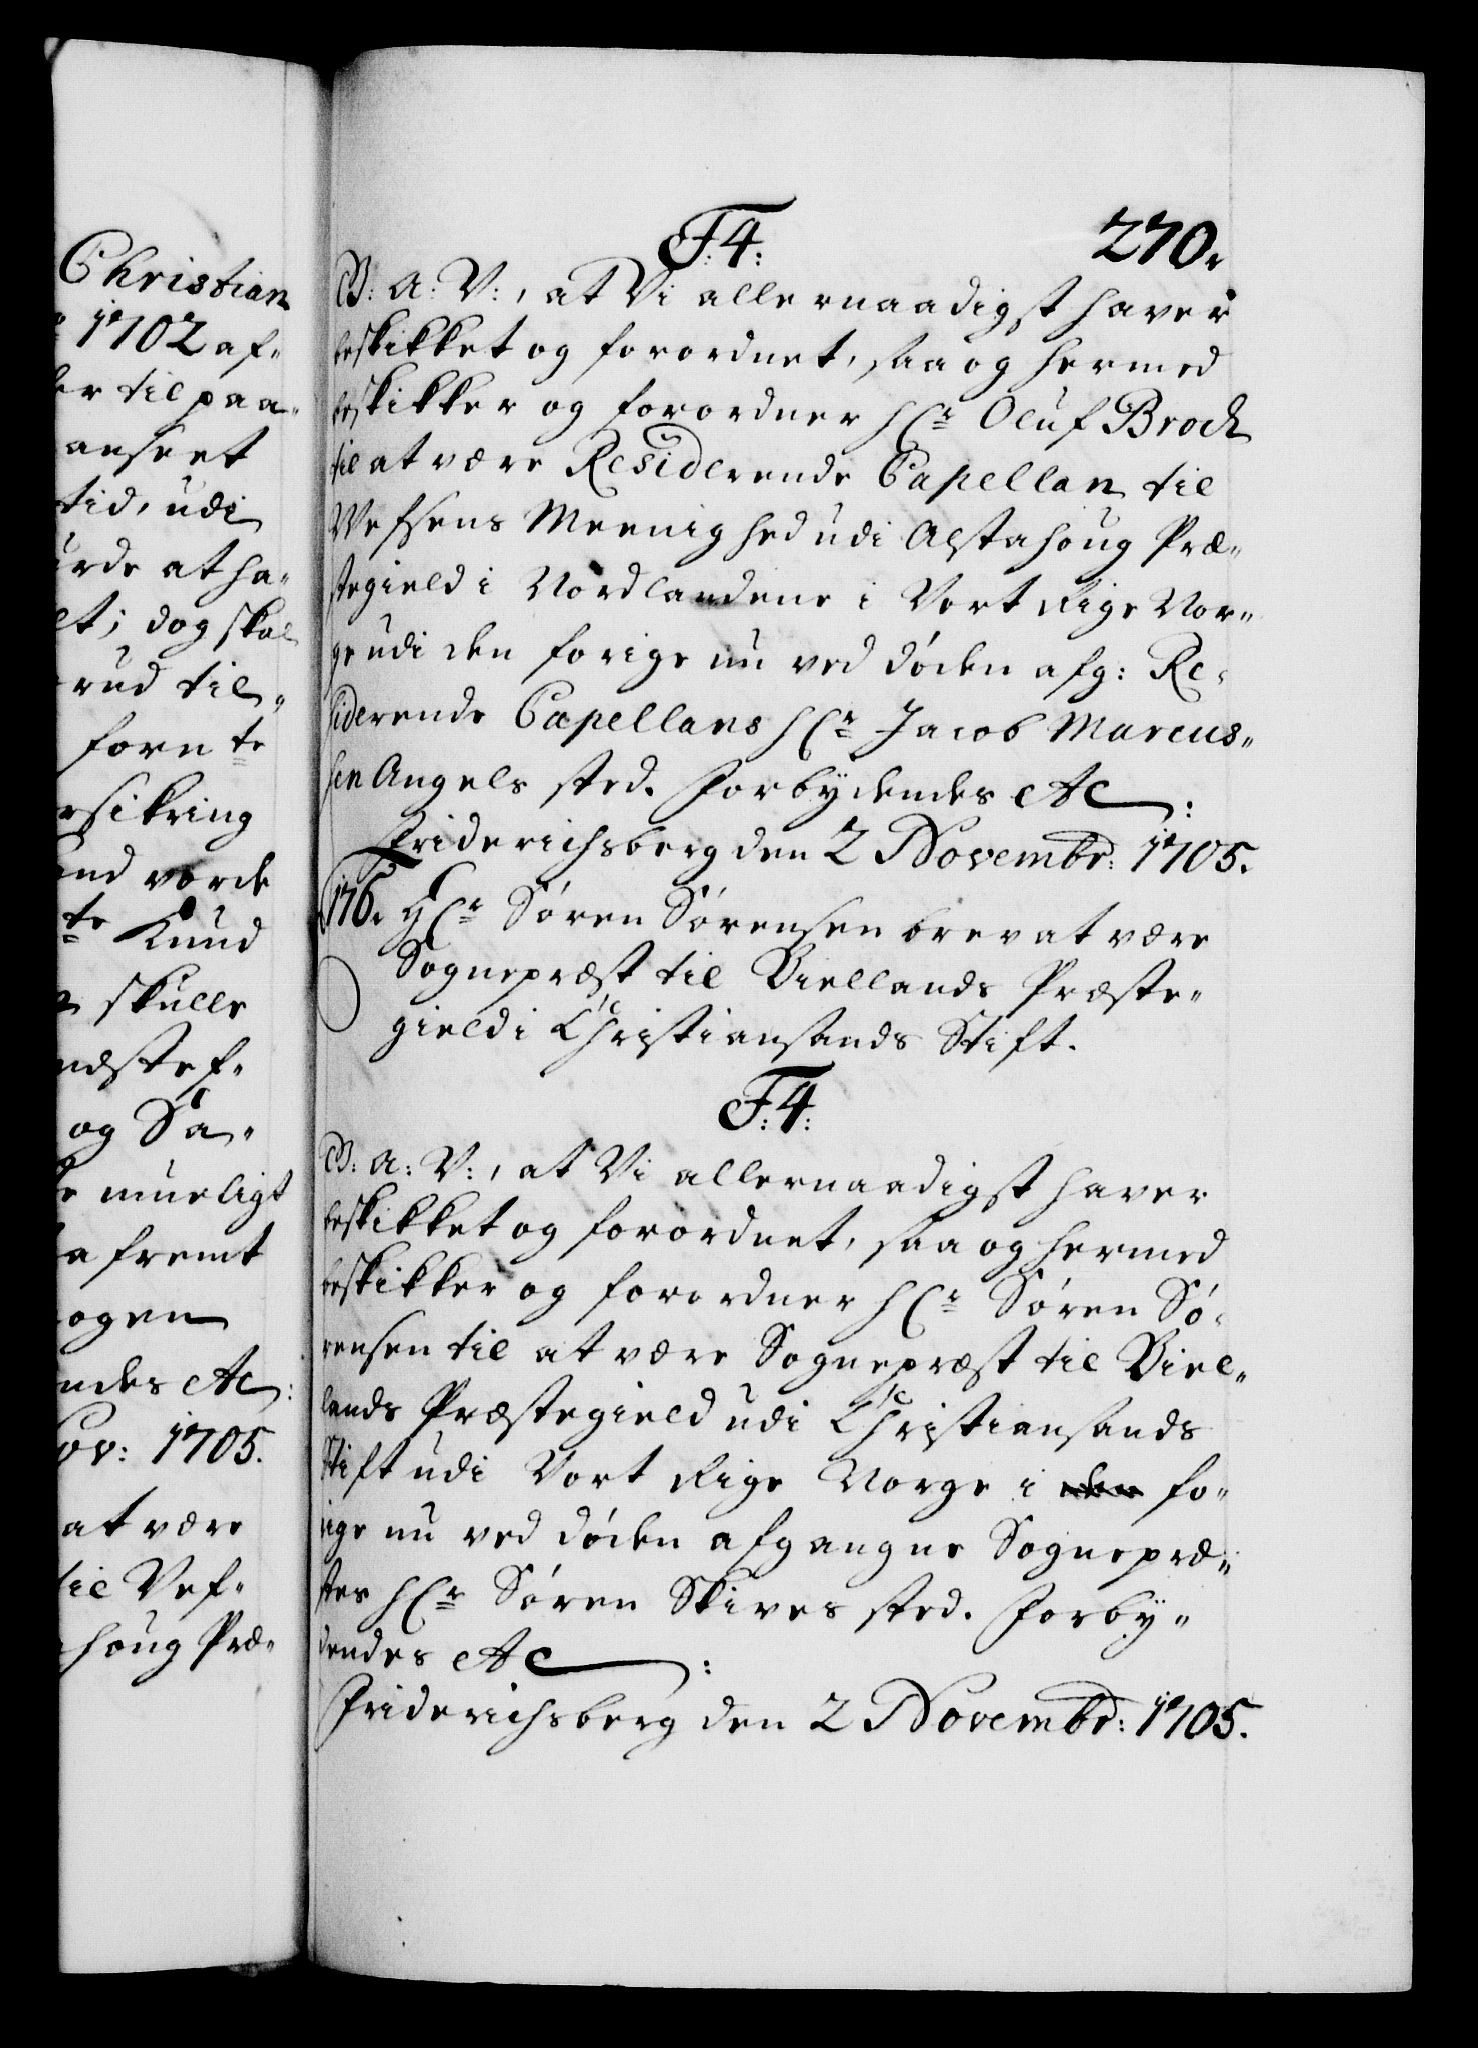 Christian
1702 af-
er til paa-
anseet
tid, udi
urde at ha-
et; dog skal
rud til-
forn te
rsikring
and vorde
te Knud
skulle
næstef-
og Sa-
mueligt
a fremt
ogen
ndes Ac:
ov: 1705.
at være
til Vef-
houg Præ-
F:4: 270.
G: A: V:, at Vi allernaadigst haver
beskikket og forordnet, saa og hermed
beskikker og forordner hr Oluf Broch
til at være Residerende Capellan til
Wefsens Meenighed udi Alstahoug Præ-
stegield i Nordlandene i Vort Rige Nor-
ge udi den forige nu ved døden afg: Re-
siderende Capellans hr Jacob Marcus-
sen Angels sted. Forbydendes Ac:
Friderichsberg den 2 Novembr: 1705.
176. Hr Søren Sørensen brev at være
Sognepræst til Biellands Præste-
gield i Christiansands Stift.
F:4:
G: A: V:, at Vi allernaadigst haver
beskikket og forordnet, saa og hermed
beskikker og forordner hr Søren Sø-
rensen til at være Sognepræst til Biel-
lands Præstegield udi Christiansands
Stift udi Vort Rige Norge i den fo-
rige nu ved døden afgangne Sognepræ-
stes hr Søren Skives sted. Forby-
dendes Ac:
Friderichsberg den 2 Novembr: 1705.